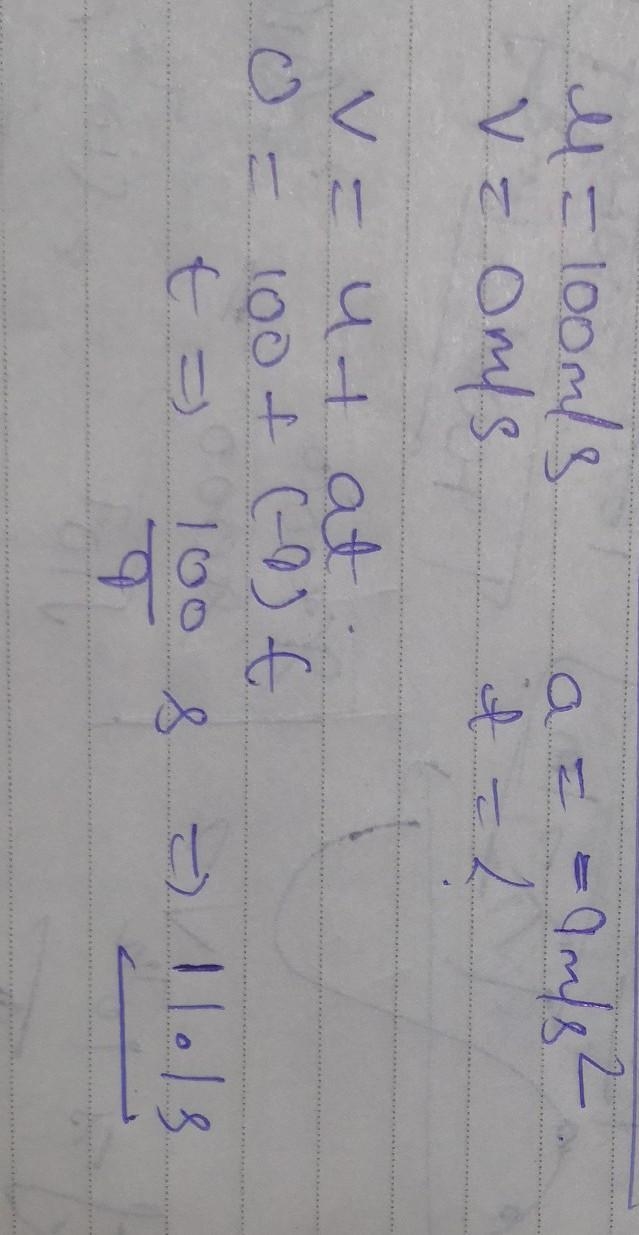 u = 100m/s a = -9m/s²
v = 0m/s t = ?
v = u + at
0 = 100 + (-9) t
t => 100/9 s => 11.1s